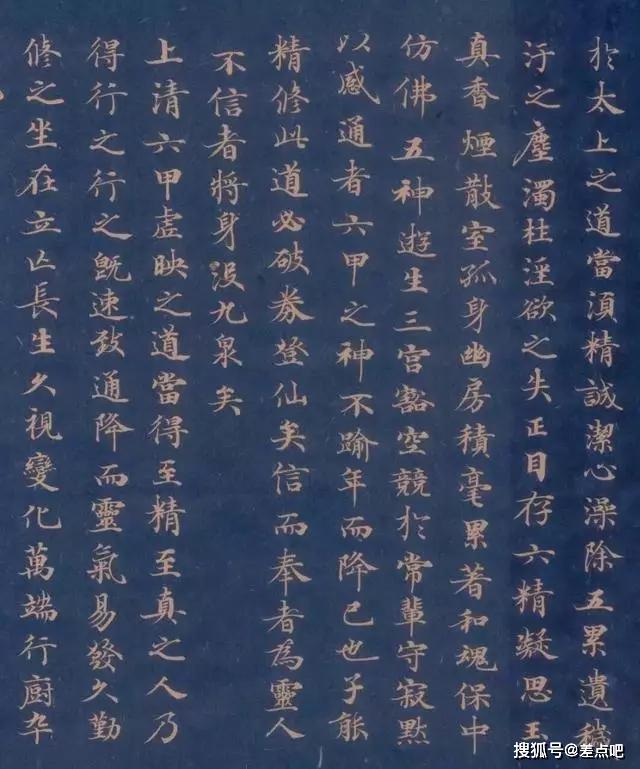 於太上之道當湏精誠潔心澡除五累遺穢
汙之塵濁杜淫欲之失正目存六精凝思玉
真香煙散室孤身幽房積毫累著和魂保中
仿佛五神遊生三宮豁空競於常輩守寂默
以感通者六甲之神不踰年而降已也子能
精修此道必破券登仙矣信而奉者為靈人
不信者將身沒九泉矣
上清六甲虛映之道當得至精至真之人乃
得行之行之既速致通降而靈氣易發久勤
修之坐在立亡長生久視變化萬端行廚卒
搜狐号@差点吧